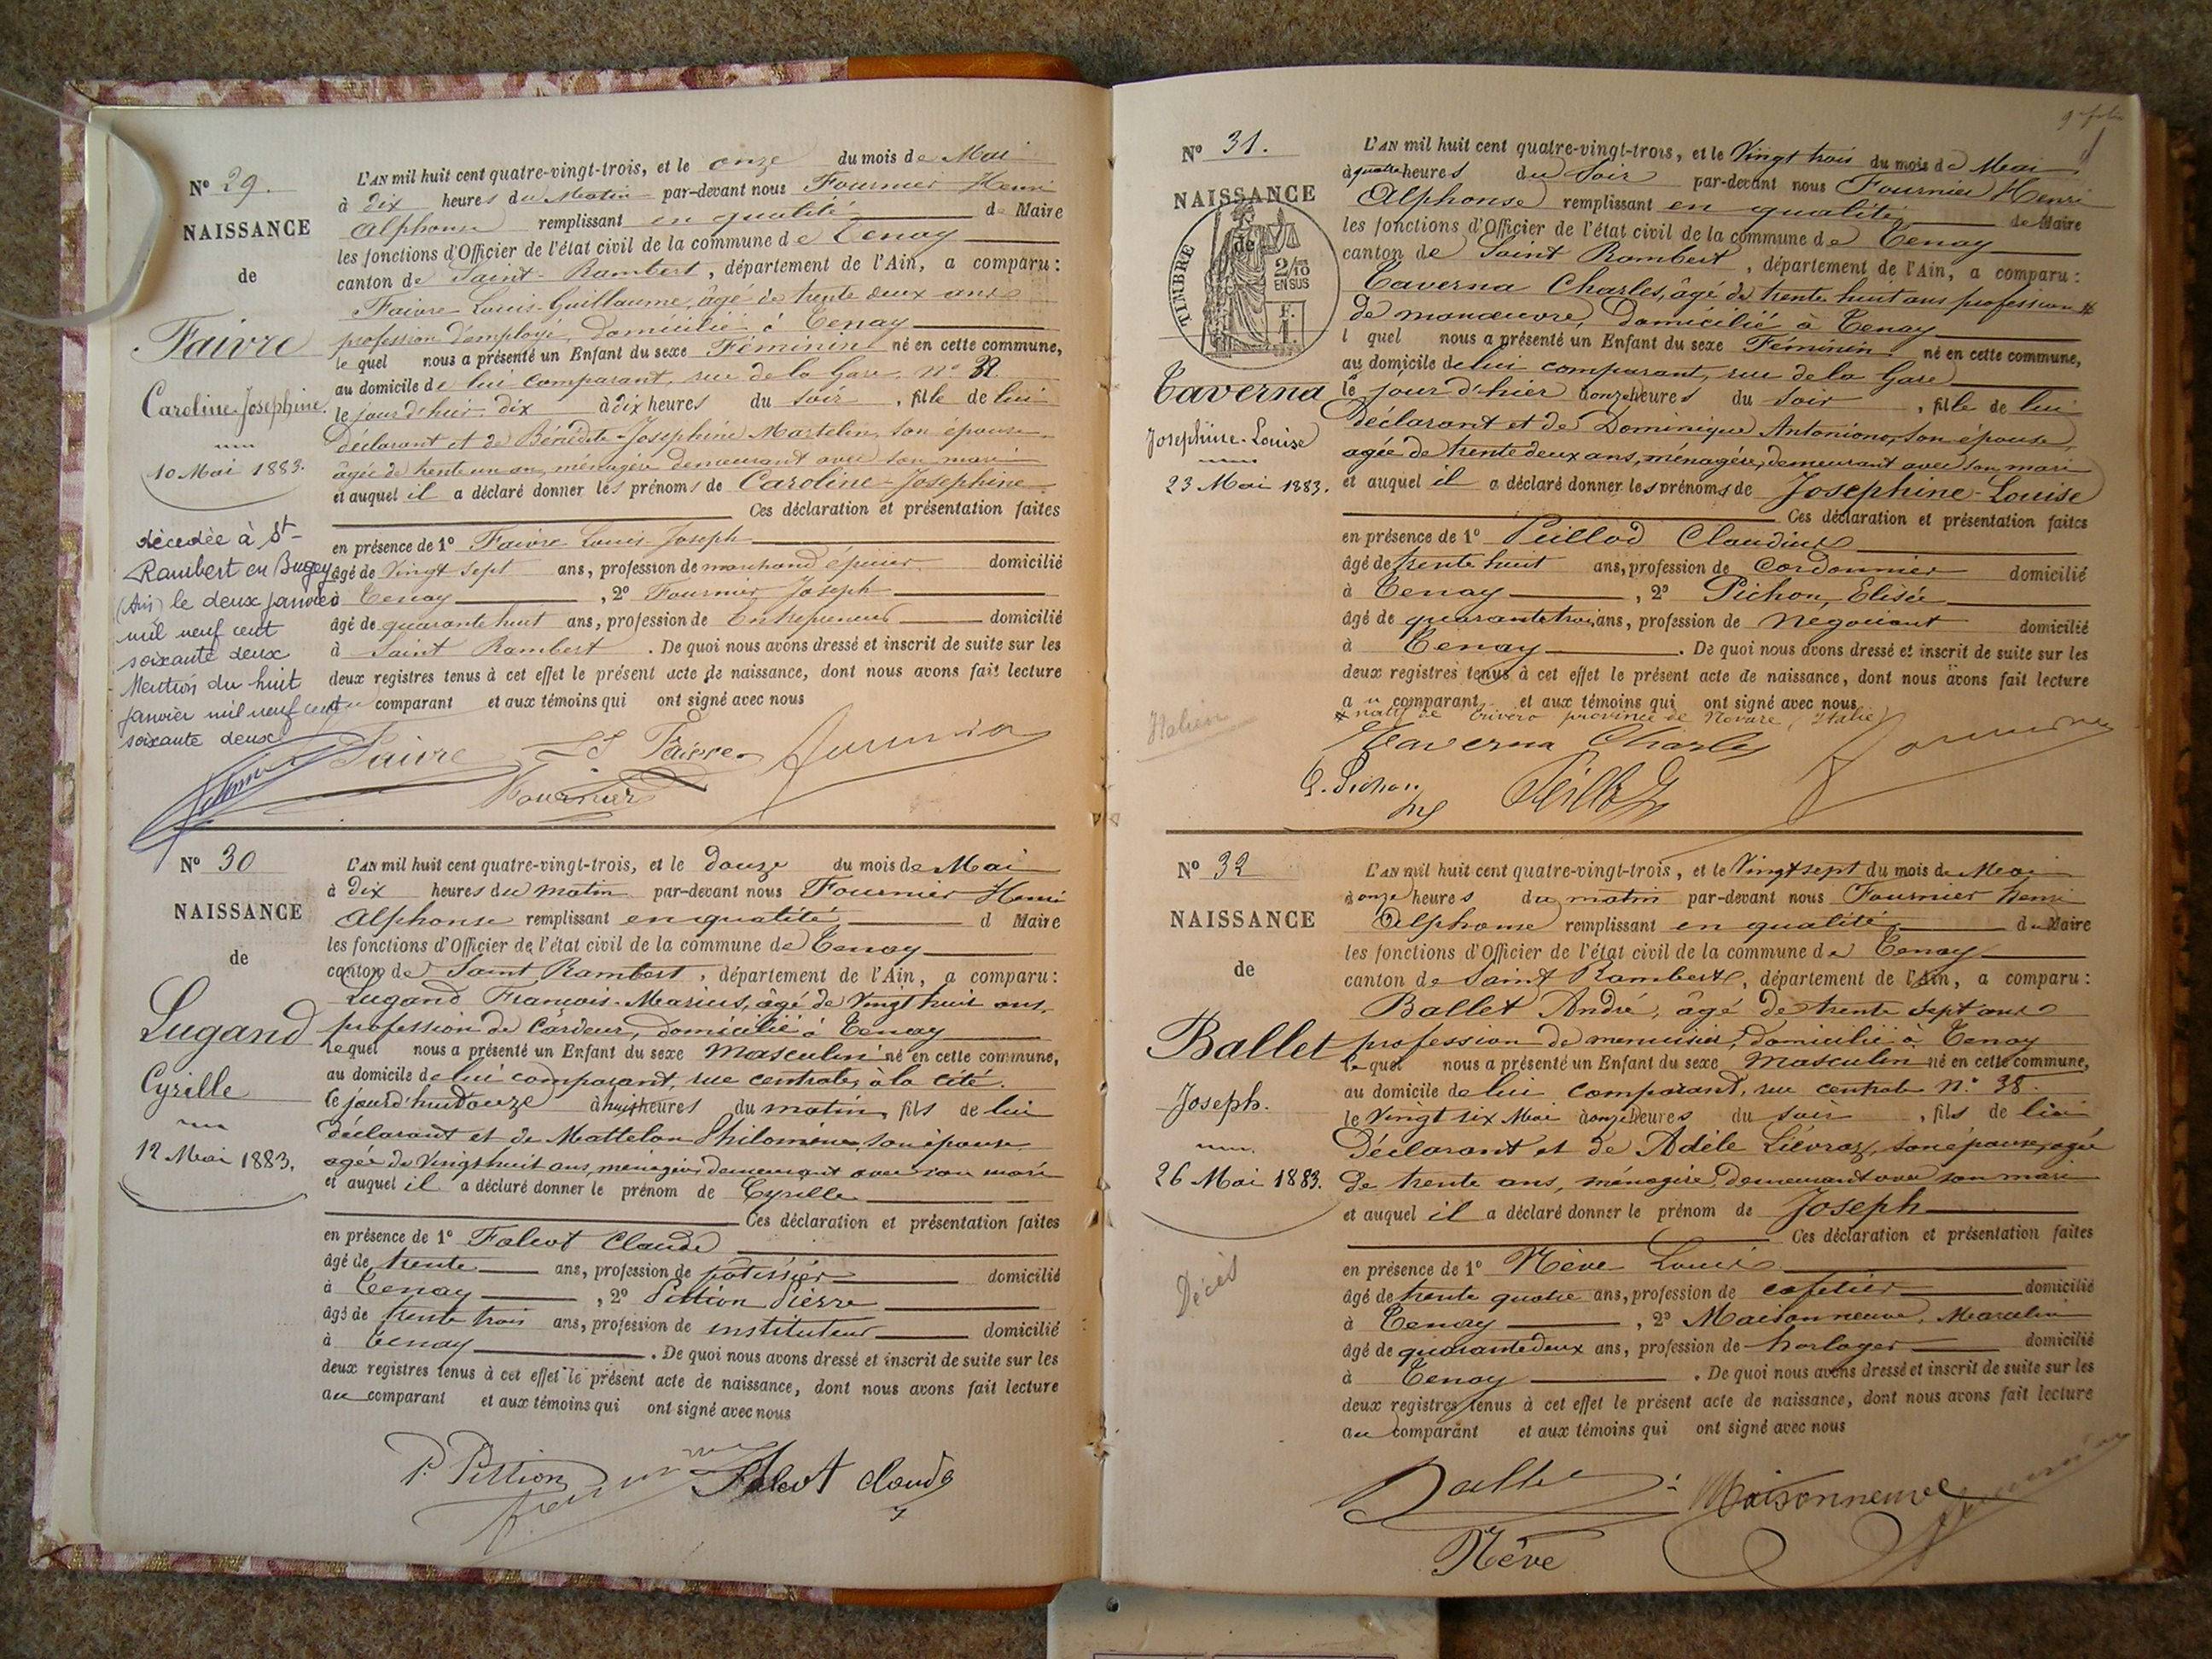 N° 29.
NAISSANCE
de
Faivre
Caroline-Josephine.
10 Mai 1883.
décédée à St-
Rambert en Bugey
(Ain) le deux janvier
mil neuf cent
soixante deux
Mention du huit
janvier mil neuf cent
soixante deux
L'AN mil huit cent quatre-vingt-trois, et le onze du mois de Mai
à dix heures du Matin par-devant nous Fournier Henri
Alphonse remplissant en qualité de Maire
les fonctions d'Officier de l'état civil de la commune de Tenay
canton de Saint-Rambert, département de l'Ain, a comparu :
Faivre Louis-Guillaume, âgé de trente deux ans
profession d'employé, domicilié à Tenay
le quel nous a présenté un Enfant du sexe Féminin né en cette commune,
au domicile de lui comparant, rue de la Gare N°
le jour d'hier dix à dix heures du soir, fille de lui
déclarant et de Bénédite-Josephine Martelin, son épouse
âgée de trente un an, ménagère demeurant avec son mari
et auquel il a déclaré donner les prénoms de Caroline-Josephine
Ces déclaration et présentation faites
en présence de 1° Faivre Louis-Joseph
âgé de Vingt sept ans, profession de marchand épicier domicilié
à Tenay, 2° Fournier Joseph
âgé de quarante huit ans, profession de Entrepreneur domicilié
à Saint Rambert. De quoi nous avons dressé et inscrit de suite sur les
deux registres tenus à cet effet le présent acte de naissance, dont nous avons fait lecture
au comparant et aux témoins qui ont signé avec nous
Faivre Faivre
Fournier
N° 30
NAISSANCE
de
Lugand
Cyrille
12 Mai 1883.
L'AN mil huit cent quatre-vingt-trois, et le douze du mois de Mai
à dix heures du matin par-devant nous Fournier Henri
Alphonse remplissant en qualité d Maire
les fonctions d'Officier de l'état civil de la commune de Tenay
canton de Saint Rambert, département de l'Ain, a comparu :
Lugand François-Marius, âgé de Vingt huit ans,
profession de Cardeur, domicilié à Tenay
Lequel nous a présenté un Enfant du sexe Masculin né en cette commune,
au domicile de lui comparant, rue centrale, à la cité.
le jourd'hui douze à huit heures du matin, fils de lui
déclarant et de Mattelon Philomène, son épouse
agée de Vingt huit ans, ménagère demeurant avec son mari
et auquel il a déclaré donner le prénom de Cyrille
Ces déclaration et présentation faites
en présence de 1° Falcot Claude
âgé de trente ans, profession de pâtissier domicilié
à Tenay, 2° Pittion Pierre
âgé de trente trois ans, profession de instituteur domicilié
à Tenay. De quoi nous avons dressé et inscrit de suite sur les
deux registres tenus à cet effet le présent acte de naissance, dont nous avons fait lecture
au comparant et aux témoins qui ont signé avec nous
P. Pittion Falcot Claude
N° 31.
NAISSANCE
de
TIMBRE
2/10
EN SUS
Taverna
Josephine-Louise
23 Mai 1883.
L'AN mil huit cent quatre-vingt-trois, et le Vingt trois du mois de Mai
à quatre heures du Soir par-devant nous Fournier Henri
Alphonse remplissant en qualité de Maire
les fonctions d'Officier de l'état civil de la commune de Tenay
canton de Saint Rambert, département de l'Ain, a comparu :
Taverna Charles, âgé de trente huit ans profession
de manœuvre, Domicilié à Tenay
l quel nous a présenté un Enfant du sexe Féminin né en cette commune,
au domicile de lui comparant, rue de la Gare
le jour d'hier à onze heures du soir, fille de lui
déclarant et de Dominique Antoniono, son épouse,
agée de trente deux ans, ménagère, demeurant avec son mari
et auquel il a déclaré donner les prénoms de Josephine-Louise
Ces déclaration et présentation faites
en présence de 1° Peillod Claudius
âgé de trente huit ans, profession de Cordonnier domicilié
à Tenay, 2° Pichon, Elisée
âgé de quarante trois ans, profession de Négociant domicilié
à Tenay. De quoi nous avons dressé et inscrit de suite sur les
deux registres tenus à cet effet le présent acte de naissance, dont nous avons fait lecture
au comparant et aux témoins qui ont signé avec nous
natif de Trivero province de Novare (Italie)
Taverna Charles
E. Pichon Peillod
N° 32
NAISSANCE
de
Ballet
Joseph.
26 Mai 1883.
Décès
L'AN mil huit cent quatre-vingt-trois, et le Vingt sept du mois de Mai
à onze heures du matin par-devant nous Fournier Henri
Alphonse remplissant en qualité de Maire
les fonctions d'Officier de l'état civil de la commune de Tenay
canton de Saint Rambert, département de l'Ain, a comparu :
Ballet André, âgé de trente sept ans
profession de menuisier, domicilié à Tenay
le quel nous a présenté un Enfant du sexe Masculin né en cette commune,
au domicile de lui comparant, rue centrale N° 38.
le Vingt six Mai à onze heures du soir, fils de lui
Déclarant et de Adèle Liévroz, son épouse, agée
de trente ans, ménagère, demeurant avec son mari
et auquel il a déclaré donner le prénom de Joseph
Ces déclaration et présentation faites
en présence de 1° Nève Louis
âgé de trente quatre ans, profession de cafetier domicilié
à Tenay, 2° Maisonneuve, Marcelin
âgé de quarante deux ans, profession de horloger domicilié
à Tenay. De quoi nous avons dressé et inscrit de suite sur les
deux registres tenus à cet effet le présent acte de naissance, dont nous avons fait lecture
au comparant et aux témoins qui ont signé avec nous
Ballet Maisonneuve
Nève